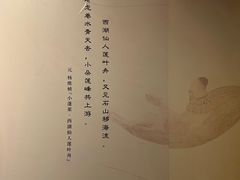 西湖仙人莲叶舟，又见石山移海流。
龙卷水青天去，小朵莲峰共上游。
元 杨维桢《小蓬莱 西湖仙人莲叶舟》